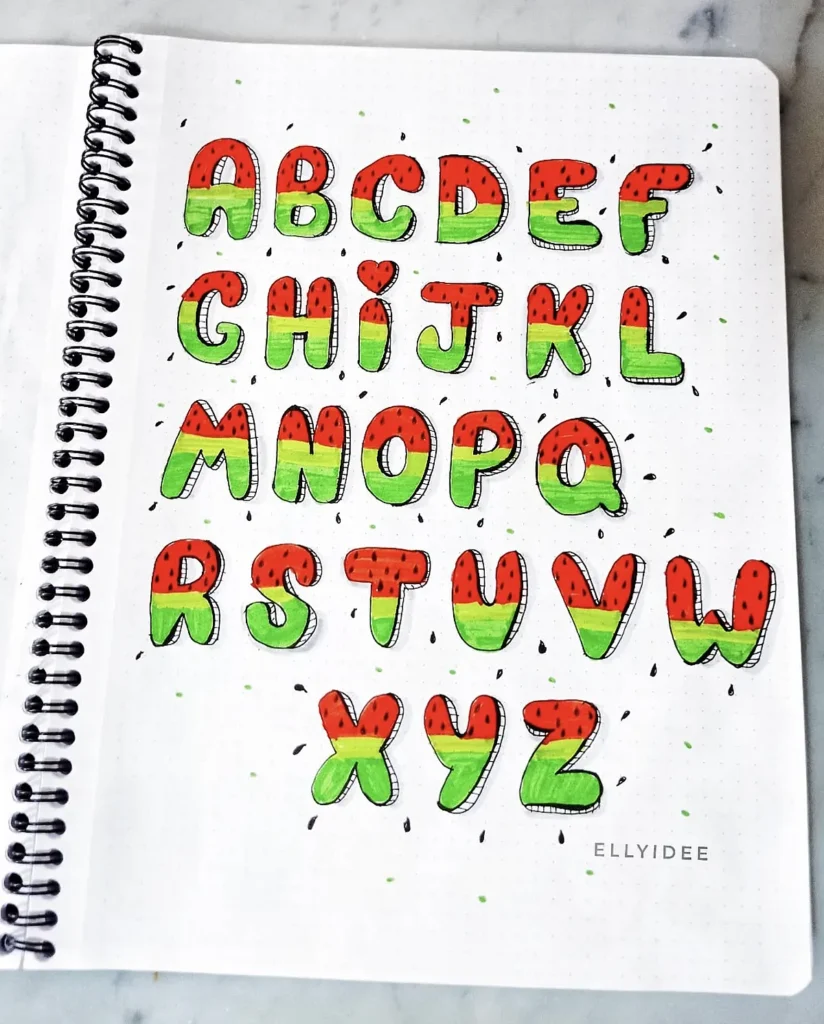 ABCDEF
GHiJKL
MNOPQ
RSTUVW
XYZ
ELLYIDEE